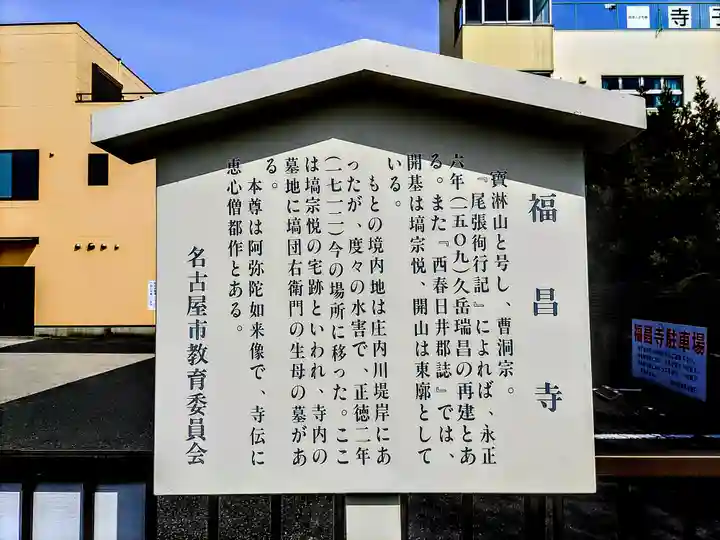 福昌寺
寶淋山と号し、曹洞宗。
『尾張徇行記』によれば、永正
六年(一五〇九)久岳瑞昌の再建とあ
る。また『西春日井郡誌』では、
開基は塙宗悦、開山は東廓として
いる。
もとの境内地は庄内川堤岸にあ
ったが、度々の水害で、正徳二年
(一七一二)今の場所に移った。ここ
は塙宗悦の宅跡といわれ、寺内の
墓地に塙団右衛門の生母の墓があ
る。
本尊は阿弥陀如来像で、寺伝に
恵心僧都作とある。
名古屋市教育委員会
福昌寺駐車場
寺子